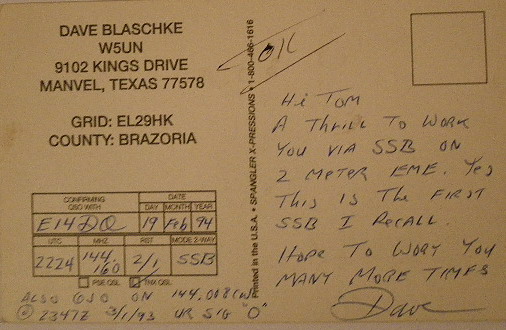 DAVE BLASCHKE
W5UN
9102 KINGS DRIVE
MANVEL, TEXAS 77578
GRID: EL29HK
COUNTY: BRAZORIA
CONFIRMING QSO WITH
DATE
DAY MONTH YEAR
EI4DQ 19 Feb 94
UTC MHZ RST MODE 2-WAY
2224 144.160 2/1 SSB
PSE QSL TNX QSL
ALSO QSO ON 144.008 CW
@ 2347Z 3/1/93 UR SIG "O"
Printed in the U.S.A. • SPANGLER X-PRESSIONS • 1-800-486-1616
OK
Hi Tom
A Thrill To Work
You VIA SSB ON
2 METER EME. Yes
This Is The First
SSB I Recall.
Hope To Work You
MANY MORE TIMES
Dave